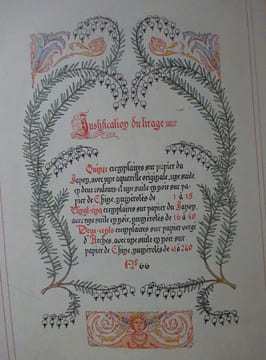 Justification du tirage
Quinze exemplaires sur papier du
Japon, avec une aquarelle originale, une suite
en deux couleurs et une suite en noir sur pa-
pier de Chine, numérotés de 1 à 15
Vingt-cinq exemplaires sur papier du Japon
avec une suite en noir, numérotés de 16 à 40
Deux-cents exemplaires sur papier vergé
d'Arches, avec une suite en noir sur
papier de Chine, numérotés de 41 à 240
Nº 66